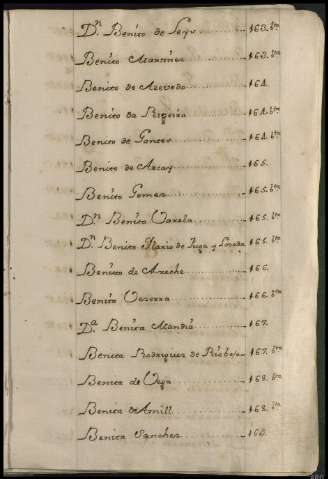 Dⁿ. Benito de Seijo 163. bta
Benito Martinez 163. bta
Benito de Azevedo 164.
Benito da Rigueira 164. bta
Benito de 164. bta
Benito de Array 165.
Benito Gomez 165. bta
Dⁿ. Benito Varela 165. bta
Dⁿ. Benito Florio de Puga y Losada 165. bta
Benito de Areche 166.
Benito 166. bta
Dª. Benita Mandiá 167.
Benita Rodriguez de 167. bta
Benita de Vega 168. bta
Benita 168. bta
Benita Sanchez 169.